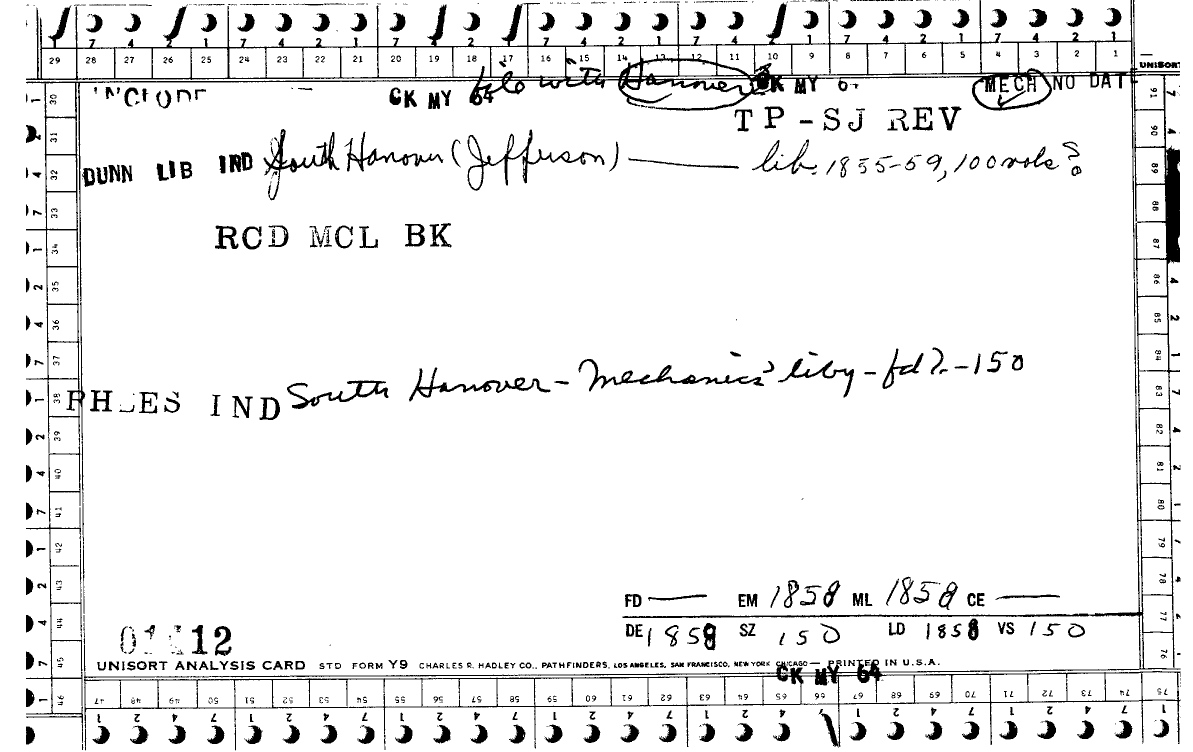 7 4 2 1 7 4 2 1 7 4 2 1 7 4 2 1 7 4 2 1 7 4 2 1 7 4 2 1
29 28 27 26 25 24 23 22 21 20 19 18 17 16 15 14 13 12 11 10 9 8 7 6 5 4 3 2 1
UNISORT
file with Hanover
INCLUDE CK MY 64 CK MY MECH NO DAT
TP-SJ REV
DUNN LIB IND South Hanover (Jefferson) — lib. 1855-59, 100 vols?
RCD MCL BK
PHLES IND South Hanover - Mechanics' liby - fd ?. - 150
FD — EM 1858 ML 1858 CE —
DE 1858 SZ 150 LD 1858 VS 150
12
UNISORT ANALYSIS CARD STD FORM Y9 CHARLES R. HADLEY CO., PATHFINDERS, LOS ANGELES, SAN FRANCISCO, NEW YORK CHICAGO — PRINTED IN U.S.A.
CK MY 64
30 31 32 33 34 35 36 37 38 39 40 41 42 43 44 45 46
47 48 49 50 51 52 53 54 55 56 57 58 59 60 61 62 63 64 65 66 67 68 69 70 71 72 73 74 75
91 90 89 88 87 86 85 84 83 82 81 80 79 78 77 76